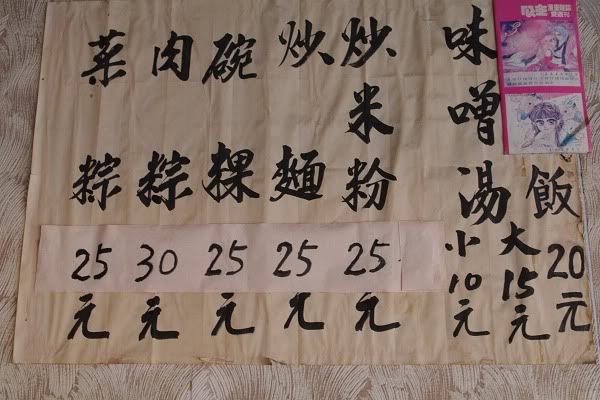 飯20元
味噌湯
大15元
小10元
炒米粉25元
炒麵25元
碗粿25元
肉粽30元
菜粽25元